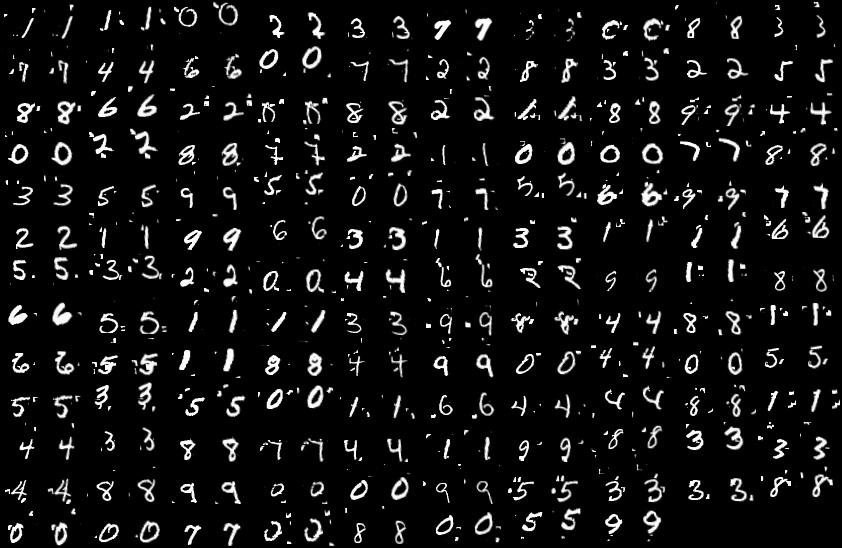 1 1 1 1 0 0 2 2 3 3 7 7 3 3 0 0 8 8 3 3
7 7 4 4 6 6 0 0 7 7 2 2 8 8 3 3 2 2 5 5
8 8 6 6 2 2 8 8 2 2 1 1 8 8 9 9 4 4
0 0 2 2 8 8 7 7 2 2 1 1 0 0 0 0 7 7 8 8
3 3 5 5 9 9 5 5 0 0 7 7 5 5 6 6 9 9 7 7
2 2 1 1 9 9 6 6 3 3 1 1 3 3 1 1 1 1 6 6
5 5 3 3 2 2 0 0 4 4 6 6 2 2 9 9 1 1 8 8
6 6 5 5 1 1 1 1 3 3 9 9 8 8 4 4 8 8 1 1
6 6 5 5 1 1 8 8 4 4 9 9 0 0 4 4 0 0 5 5
5 5 3 3 5 5 0 0 1 1 6 6 4 4 4 4 8 8 1 1
4 4 3 3 8 8 7 7 4 4 1 1 9 9 8 8 3 3 3 3
4 4 8 8 9 9 0 0 0 0 9 9 5 5 3 3 3 3 8 8
0 0 0 0 7 7 0 0 8 8 0 0 5 5 9 9